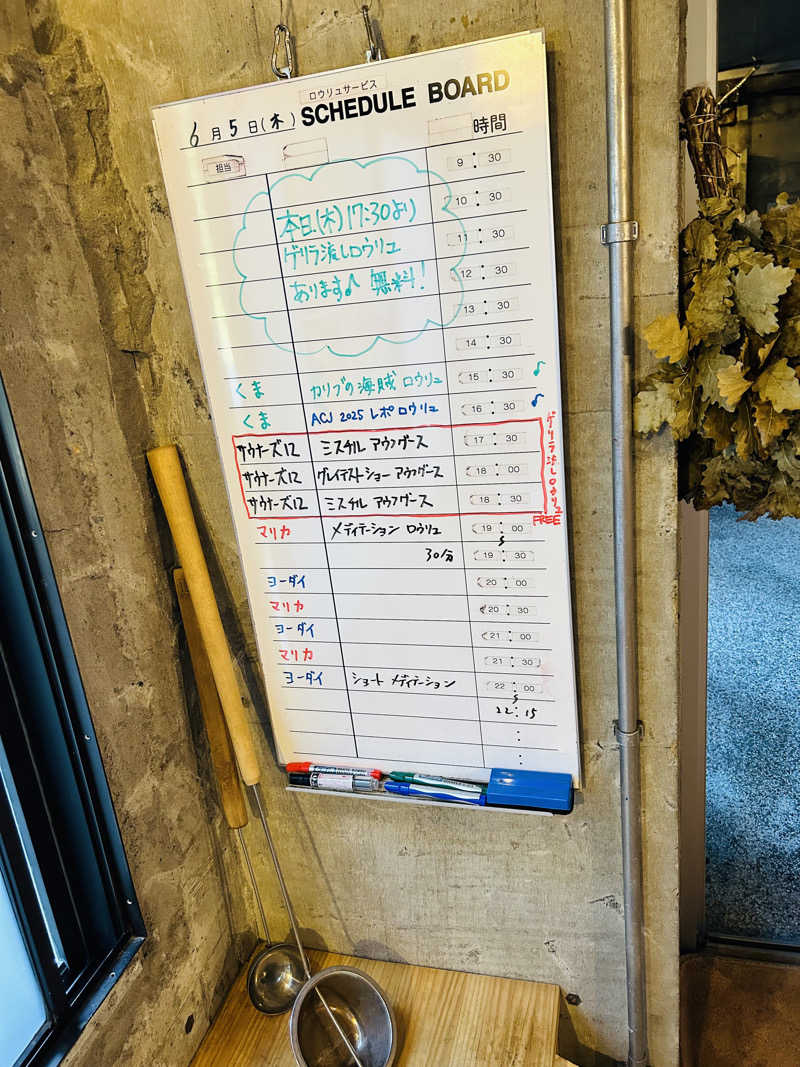 ロウリュサービス
6月5日(木) SCHEDULE BOARD
担当 時間
9:30
10:30
11:30
12:30
13:30
14:30
本日(木)17:30より
ゲリラ流しロウリュ
あります♪ 無料!
くま カリブの海賊 ロウリュ 15:30 ♪
くま ACJ 2025 レポ ロウリュ 16:30 ♪
サウナーズ12 ミスチル アウフグース 17:30
サウナーズ12 グレイテストショー アウフグース 18:00
サウナーズ12 ミスチル アウフグース 18:30
ゲリラ流しロウリュ
FREE
マリカ メディテーション ロウリュ 19:00
30分 19:30
ヨーダイ 20:00
マリカ 20:30
ヨーダイ 21:00
マリカ 21:30
ヨーダイ ショート メディテーション 22:00
22:15